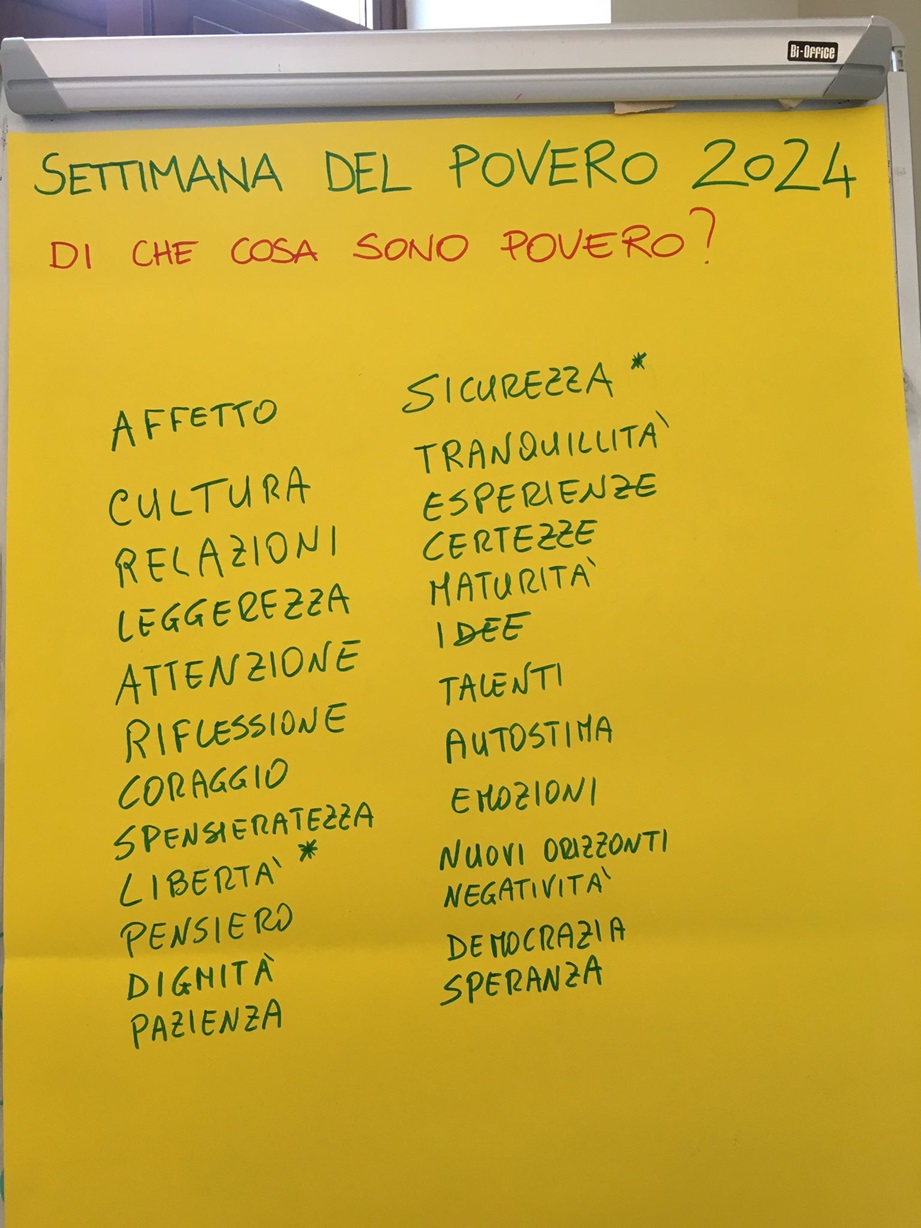 Bi-Office
SETTIMANA DEL POVERO 2024
DI CHE COSA SONO POVERO?
AFFETTO
CULTURA
RELAZIONI
LEGGEREZZA
ATTENZIONE
RIFLESSIONE
CORAGGIO
SPENSIERATEZZA
LIBERTA' *
PENSIERO
DIGNITÀ
PAZIENZA
SICUREZZA *
TRANQUILLITA'
ESPERIENZE
CERTEZZE
MATURITA'
IDEE
TALENTI
AUTOSTIMA
EMOZIONI
NUOVI ORIZZONTI
NEGATIVITA'
DEMOCRAZIA
SPERANZA